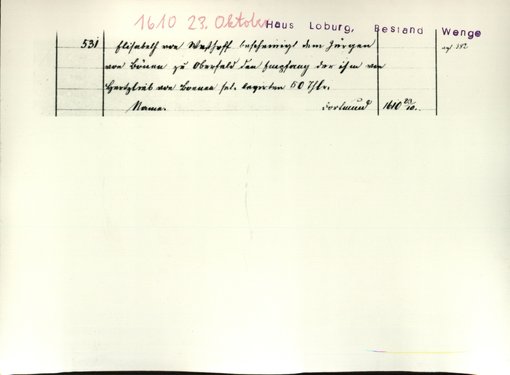 1610 23. Oktober
Haus Loburg, Bestand Wenge
531 Elisabeth von Westhoff bescheinigt dem Jürgen
von Bönen zu Oberfeld den Empfang der ihm von
von Boenen sel. legirten 50 Thlr.
Name. Dortmund 1610 23/10.